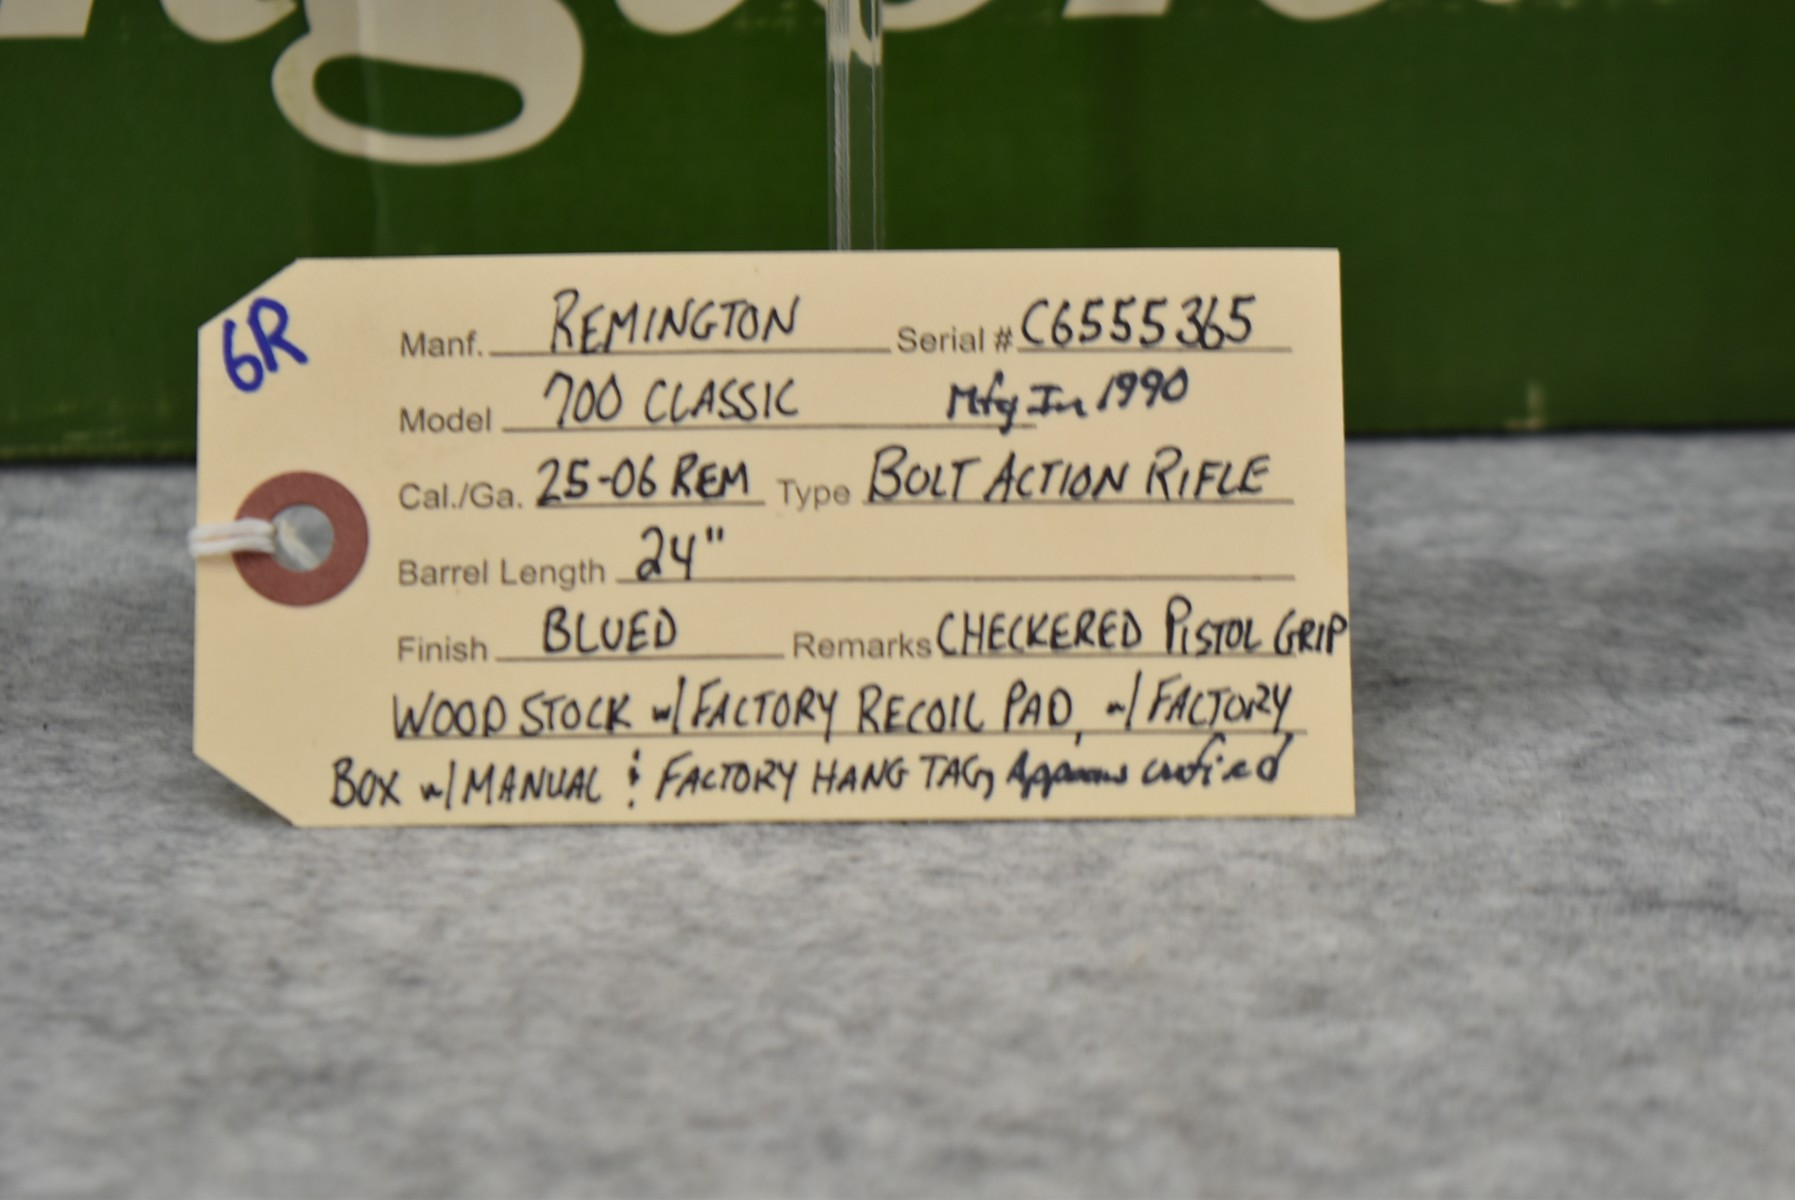 6R
Manf. REMINGTON Serial # C6555365
Model 700 CLASSIC Mfg In 1990
Cal./Ga. 25-06 REM Type BOLT ACTION RIFLE
Barrel Length 24"
Finish BLUED Remarks CHECKERED PISTOL GRIP
WOOD STOCK w/ FACTORY RECOIL PAD, w/ FACTORY
BOX w/ MANUAL & FACTORY HANG TAG, Appears unfired